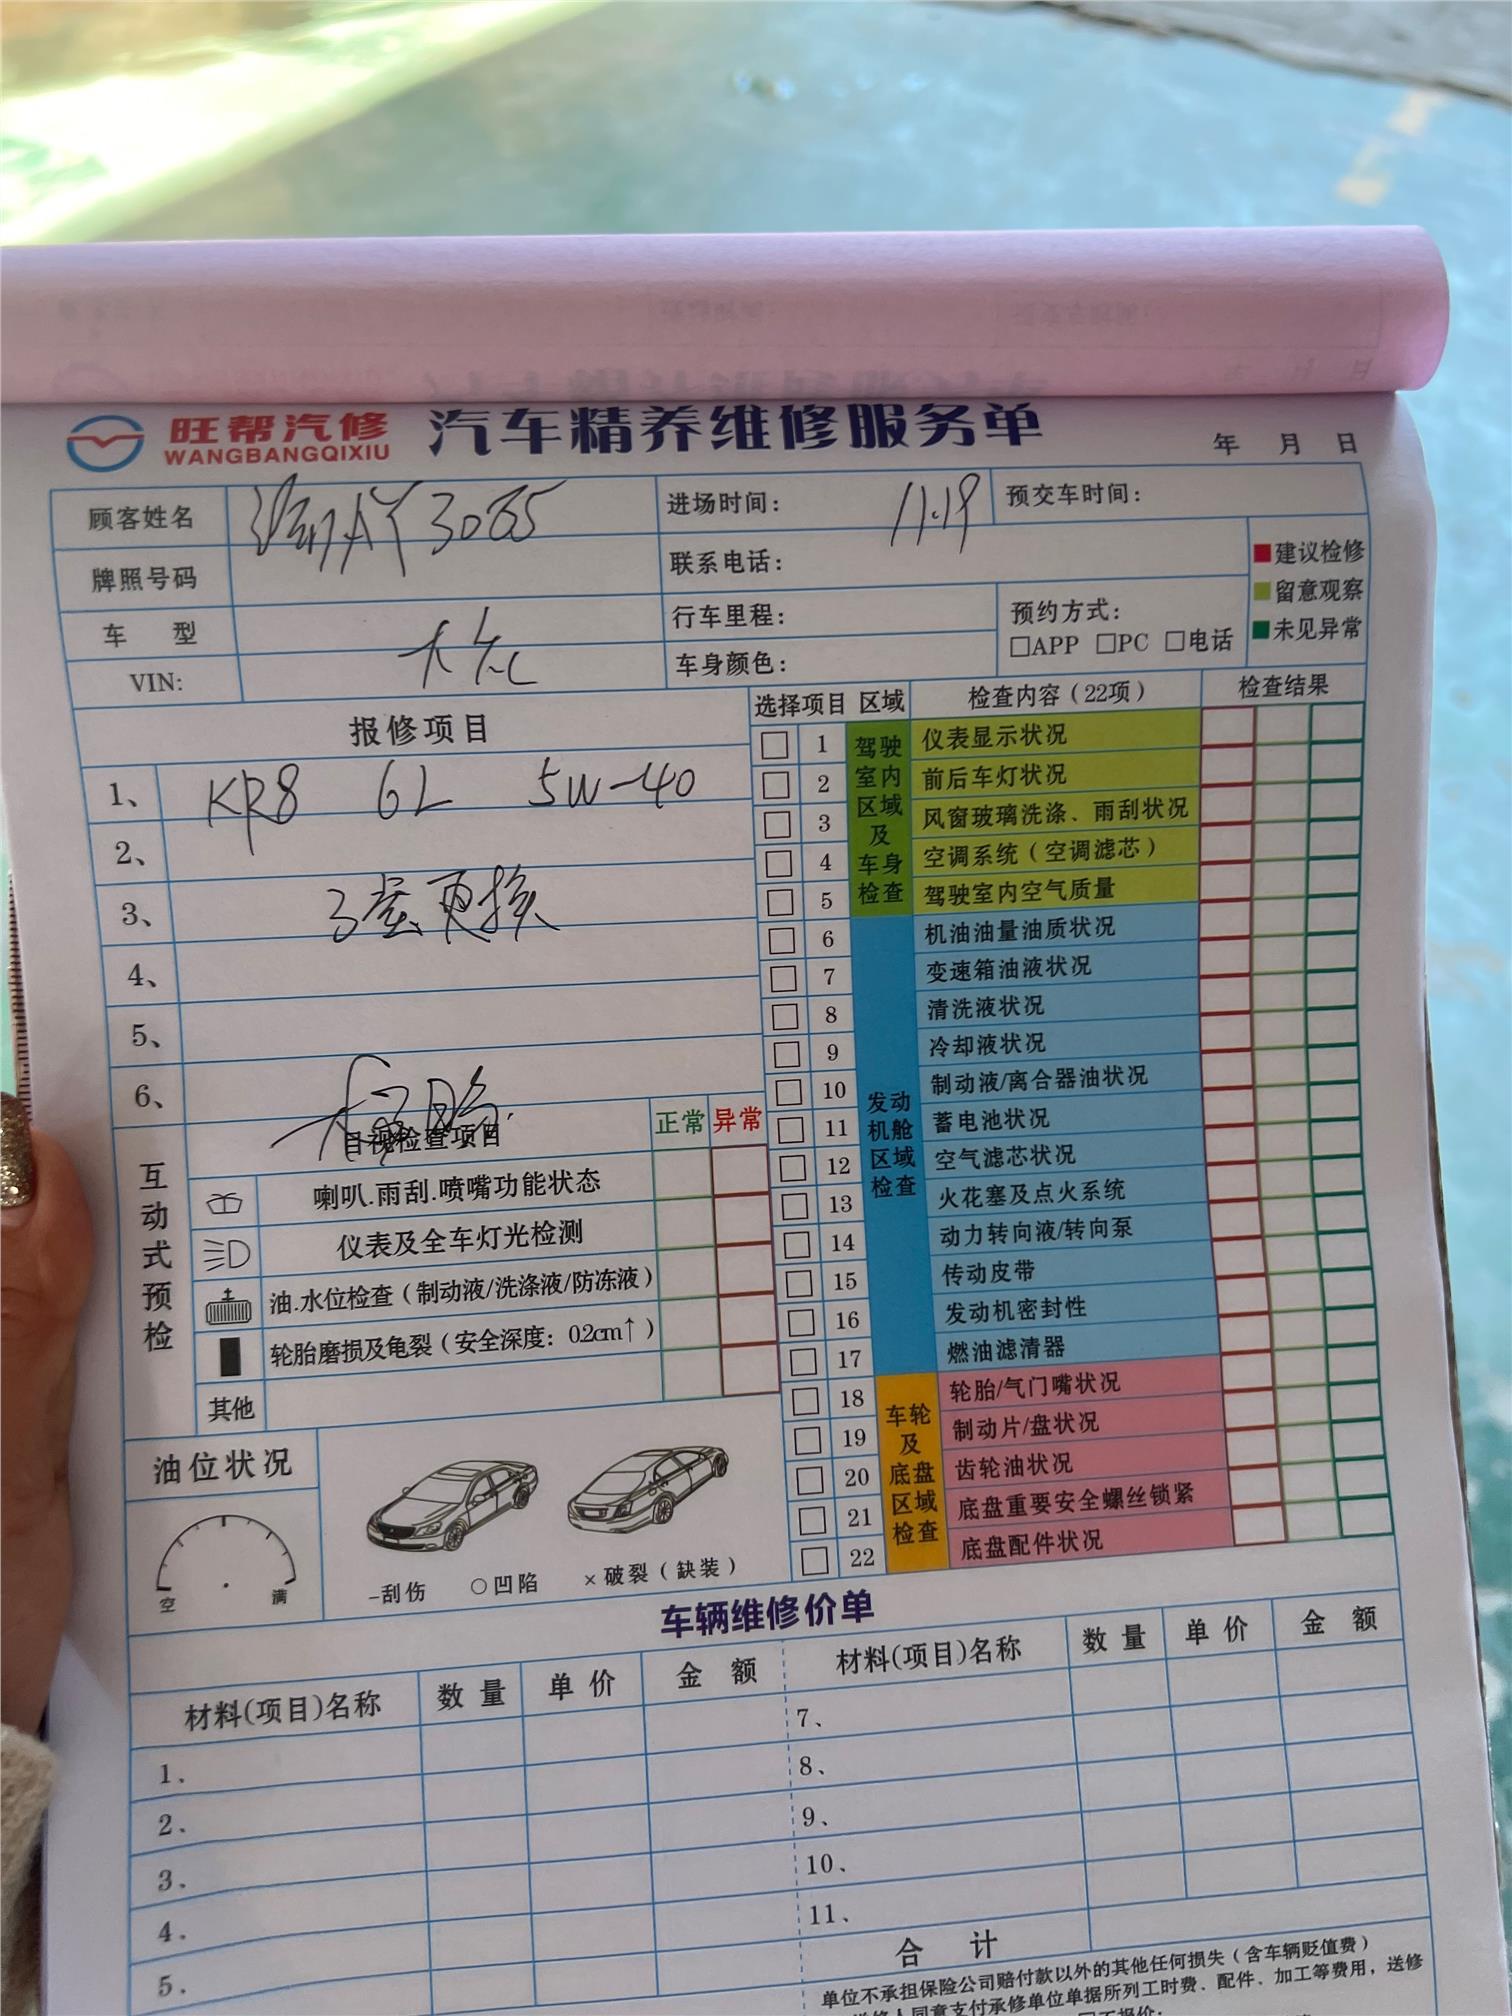 旺帮汽修 汽车精养维修服务单
WANGBANGQIXIU
年 月 日
顾客姓名 3065 进场时间: 11.19 预交车时间:
牌照号码 联系电话:
■建议检修
■留意观察
■未见异常
车 型 大众 行车里程: 预约方式:
□APP □PC □电话
VIN: 车身颜色:
报修项目
1、 KR8 6L 5W-40
2、
3、 3滤更换
4、
5、
6、
互动式预检
目视检查项目 正常 异常
喇叭.雨刮.喷嘴功能状态
仪表及全车灯光检测
油.水位检查（制动液/洗涤液/防冻液）
轮胎磨损及龟裂（安全深度：0.2cm↑）
其他
油位状况
空 满
-刮伤 ○凹陷 ×破裂（缺装）
选择项目 区域 检查内容（22项） 检查结果
驾驶室内区域及车身检查
□ 1 仪表显示状况
□ 2 前后车灯状况
□ 3 风窗玻璃洗涤、雨刮状况
□ 4 空调系统（空调滤芯）
□ 5 驾驶室内空气质量
发动机舱区域检查
□ 6 机油油量油质状况
□ 7 变速箱油液状况
□ 8 清洗液状况
□ 9 冷却液状况
□ 10 制动液/离合器油状况
□ 11 蓄电池状况
□ 12 空气滤芯状况
□ 13 火花塞及点火系统
□ 14 动力转向液/转向泵
□ 15 传动皮带
□ 16 发动机密封性
□ 17 燃油滤清器
车轮及底盘区域检查
□ 18 轮胎/气门嘴状况
□ 19 制动片/盘状况
□ 20 齿轮油状况
□ 21 底盘重要安全螺丝锁紧
□ 22 底盘配件状况
车辆维修价单
材料(项目)名称 数量 单价 金额 材料(项目)名称 数量 单价 金额
1. 7、
2. 8、
3. 9、
4. 10、
5. 11、
合 计
单位不承担保险公司赔付款以外的其他任何损失（含车辆贬值费）
同意支付承修单位单据所列工时费、配件、加工等费用，送修